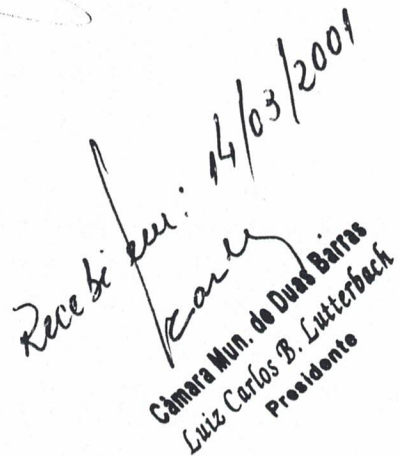 Recebi em: 14/03/2001
Câmara Mun. de Duas Barras
Luiz Carlos B. Lutterbach
Presidente